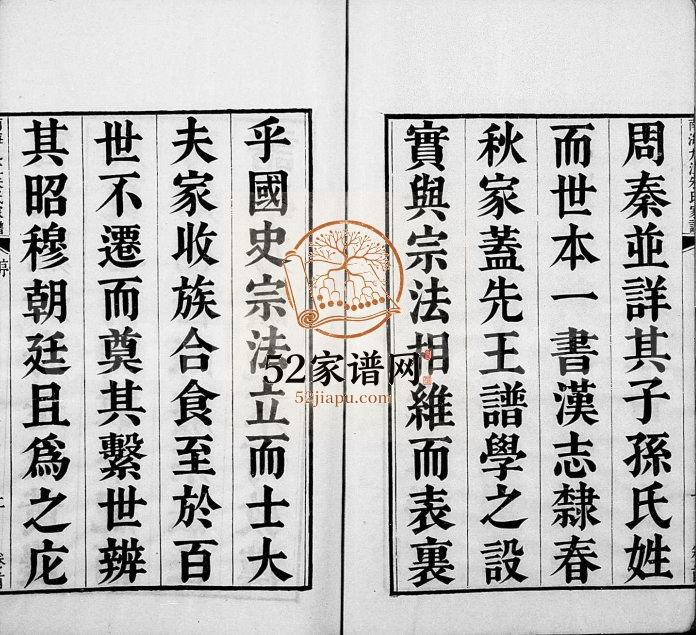 周秦並詳其子孫氏姓
而世本一書漢志隸春
秋家蓋先王譜學之設
實與宗法相維而表裏
乎國史宗法立而士大
夫家收族合食至於百
世不遷而奠其繫世辨
其昭穆朝廷且爲之庇
序
52家谱网
52jiapu.com